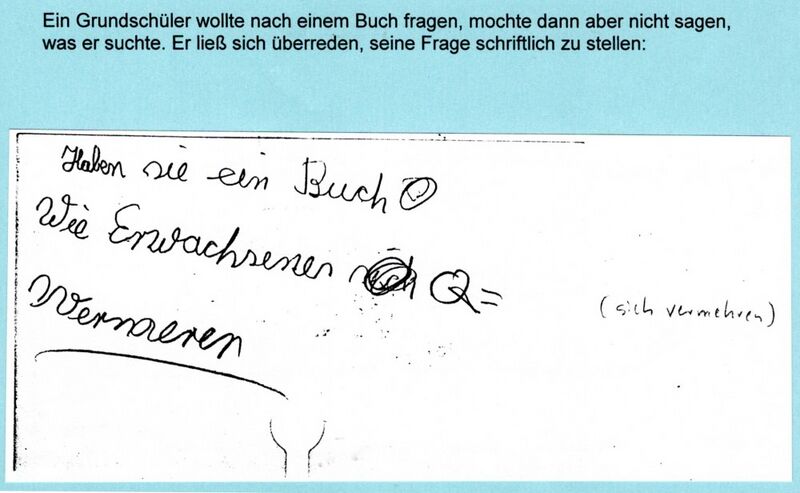 Ein Grundschüler wollte nach einem Buch fragen, mochte dann aber nicht sagen,
was er suchte. Er ließ sich überreden, seine Frage schriftlich zu stellen:
Haben sie ein Buch
Wie Erwachsenen
(sich vermehren)
Vermeren